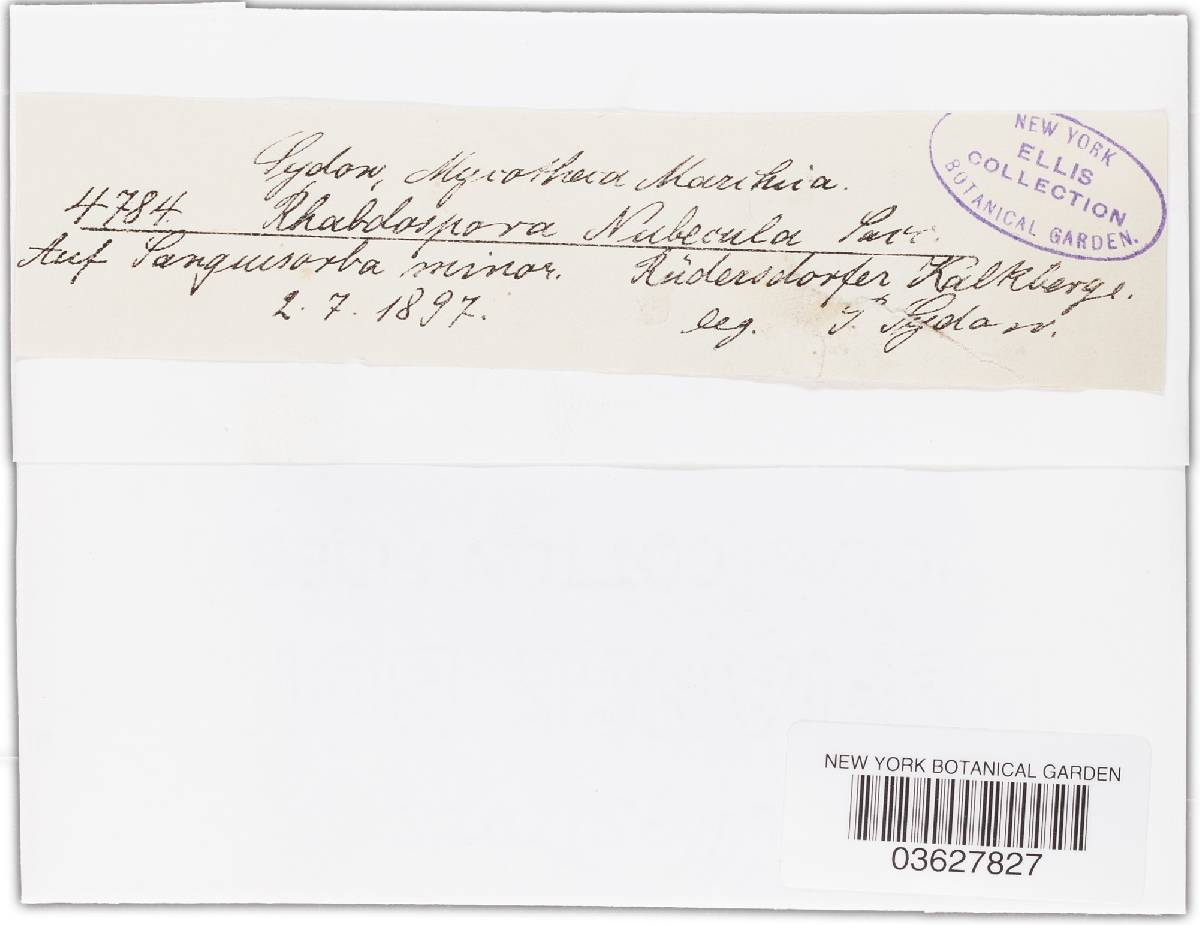 Sydow, Mycotheca Marchica.
4784. Rhabdospora Nubecula Sacc.
Auf Sanguisorba minor. Rüdersdorfer Kalkberge.
2. 7. 1897. leg. P. Sydow.
NEW YORK
ELLIS
COLLECTION
BOTANICAL GARDEN.
NEW YORK BOTANICAL GARDEN
03627827